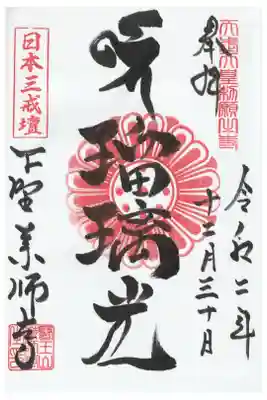 奉拝
天武天皇勅願山寺
令和二年
十二月三十日
瑠璃光
日本三戒壇
下野薬師寺